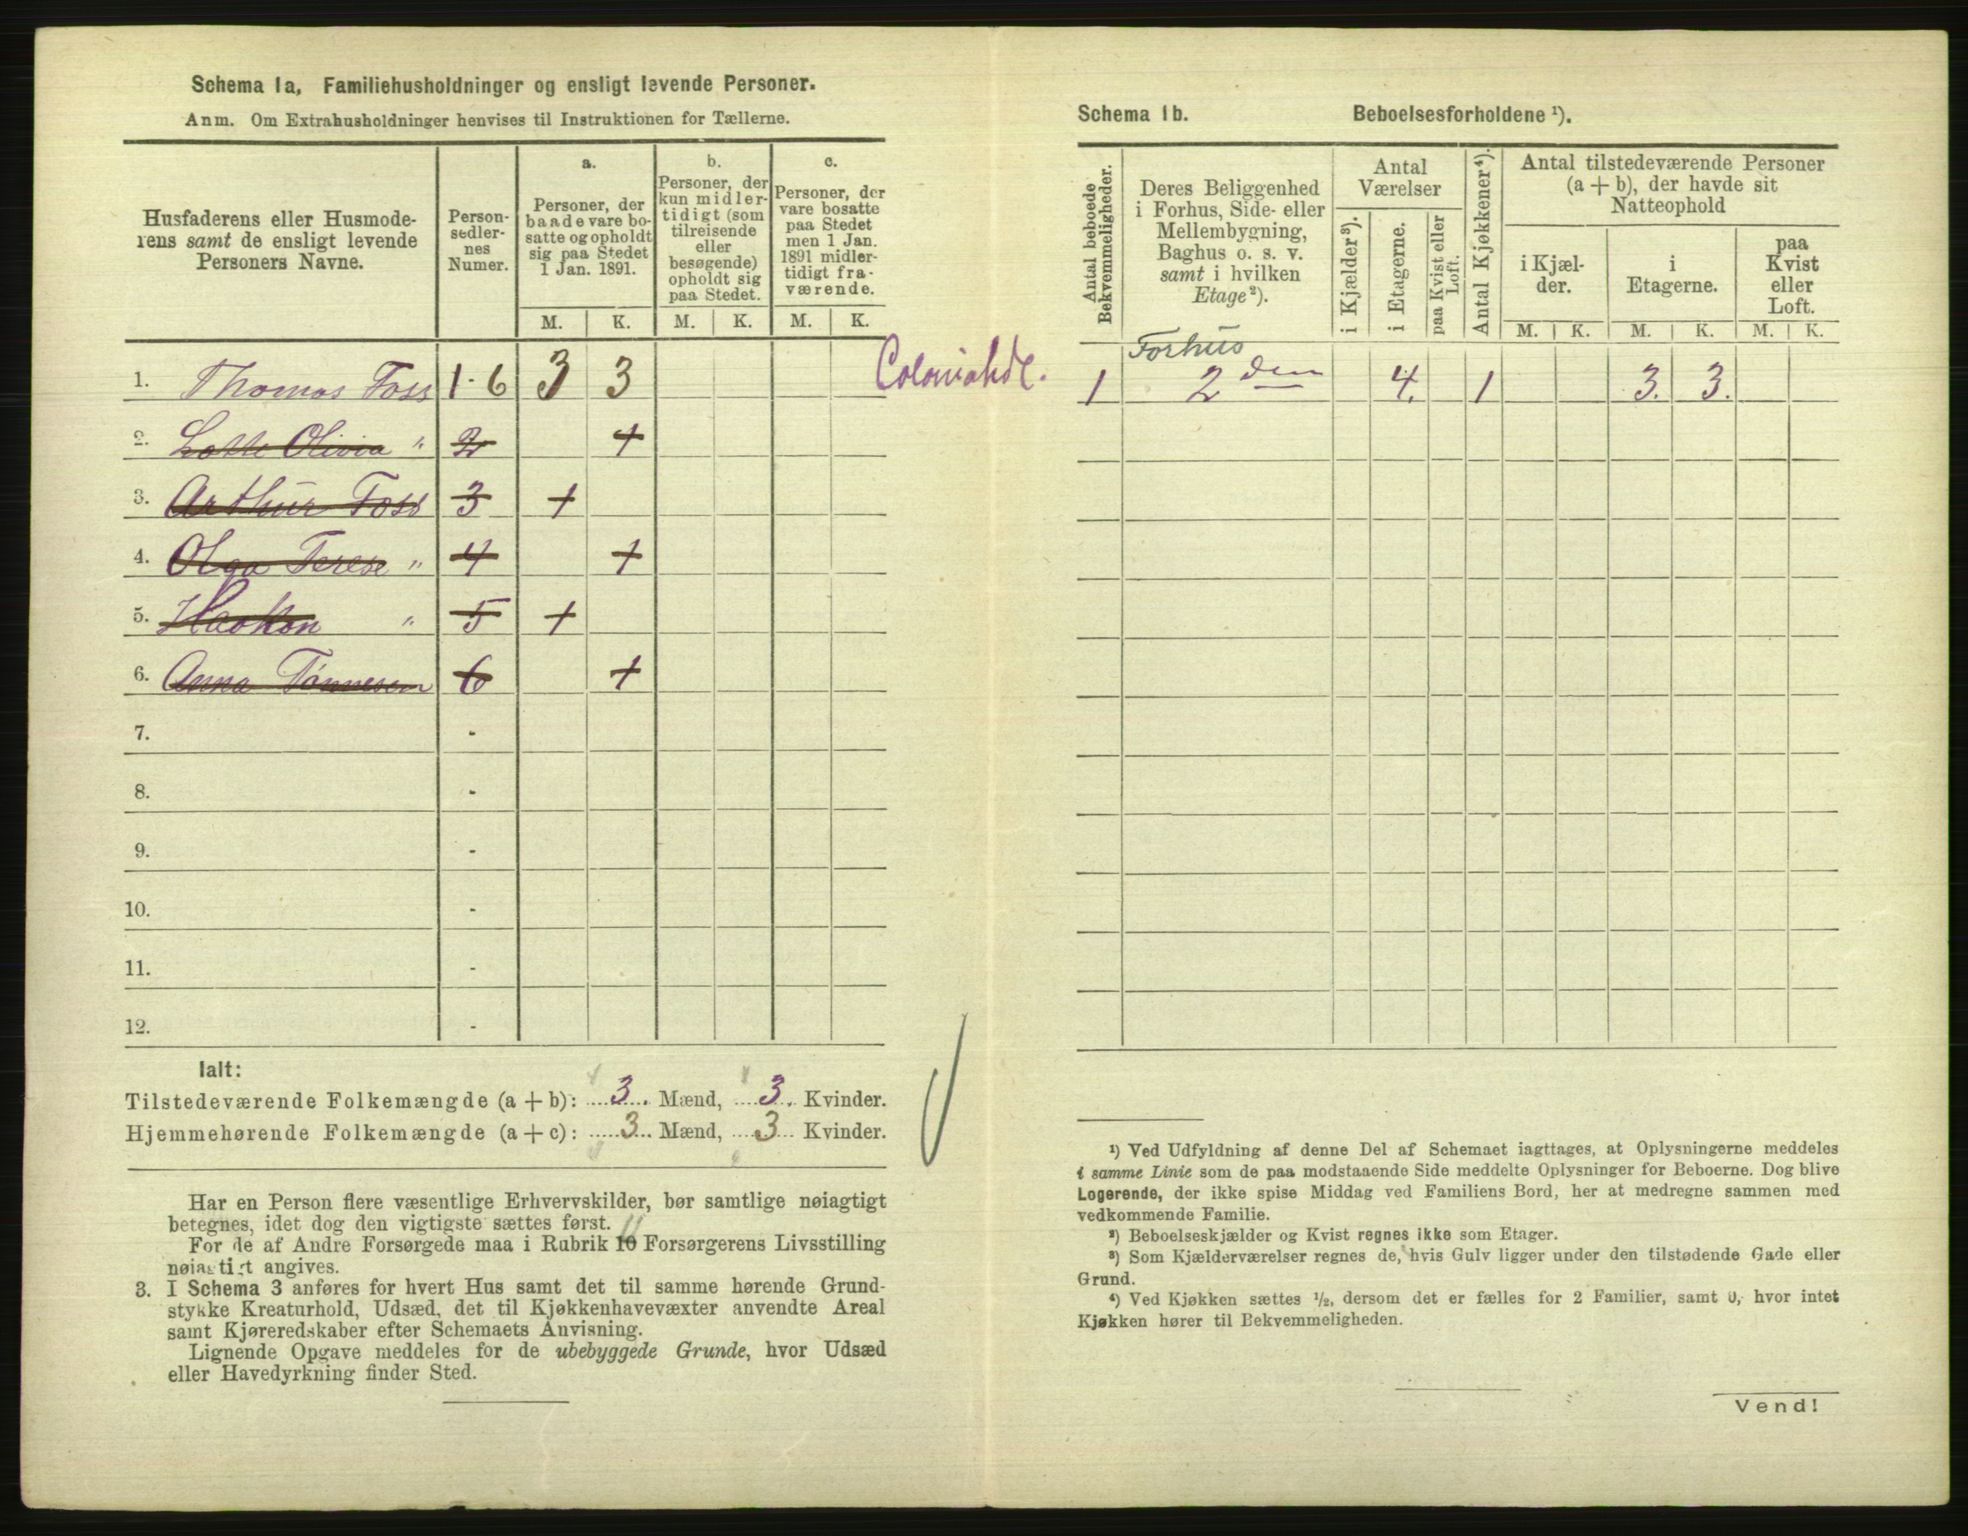 Schema 1a, Familiehusholdninger og ensligt levende Personer.
Anm. Om Extrahusholdninger henvises til Instruktionen for Tællerne.
Husfaderens eller Husmode-
rens samt de ensligt levende
Personers Navne.
Person-
sedler-
nes
Numer.
a.
Personer, der
baade vare bo-
satte og opholdt
sig paa Stedet
1 Jan. 1891.
b.
Personer, der
kun midler-
tidigt (som
tilreisende
eller
besøgende)
opholdt sig
paa Stedet.
c.
Personer, der
vare bosatte
paa Stedet
men 1 Jan.
1891 midler-
tidigt fra-
værende.
M. K. M. K. M. K.
1. Thomas Foss 1-6 3 3 Colonialhdl.
2. Lotte Olivia " 2 +
3. Arthur Foss 3 +
4. Olga Terese " 4 +
5. Haakon " 5 +
6. Anna Tønnesen 6 +
7. -
8. -
9. -
10. -
11. -
12. -
Ialt:
Tilstedeværende Folkemængde (a + b): 3. Mænd, 3. Kvinder.
Hjemmehørende Folkemængde (a + c): 3 Mænd, 3 Kvinder.
Har en Person flere væsentlige Erhvervskilder, bør samtlige nøiagtigt
betegnes, idet dog den vigtigste sættes først.
11
For de af Andre Forsørgede maa i Rubrik 10 Forsørgerens Livsstilling
nøiagtigt angives.
3. I Schema 3 anføres for hvert Hus samt det til samme hørende Grund-
stykke Kreaturhold, Udsæd, det til Kjøkkenhavevæxter anvendte Areal
samt Kjøreredskaber efter Schemaets Anvisning.
Lignende Opgave meddeles for de ubebyggede Grunde, hvor Udsæd
eller Havedyrkning finder Sted.
Schema 1b. Beboelsesforholdene ¹).
Antal beboede
Bekvemmeligheder.
Deres Beliggenhed
i Forhus, Side- eller
Mellembygning,
Baghus o. s. v.
samt i hvilken
Etage²).
Antal
Værelser
i Kjælder³).
i Etagerne.
paa Kvist eller
Loft.
Antal Kjøkkener⁴).
Antal tilstedeværende Personer
(a + b), der havde sit
Natteophold
i Kjæl-
der.
i
Etagerne.
paa
Kvist
eller
Loft.
M. K. M. K. M. K.
Forhus
1 2den 4. 1 3. 3.
¹) Ved Udfyldning af denne Del af Schemaet iagttages, at Oplysningerne meddeles
i samme Linie som de paa modstaaende Side meddelte Oplysninger for Beboerne. Dog blive
Logerende, der ikke spise Middag ved Familiens Bord, her at medregne sammen med
vedkommende Familie.
²) Beboelseskjælder og Kvist regnes ikke som Etager.
³) Som Kjælderværelser regnes de, hvis Gulv ligger under den tilstødende Gade eller
Grund.
⁴) Ved Kjøkken sættes ½, dersom det er fælles for 2 Familier, samt 0, hvor intet
Kjøkken hører til Bekvemmeligheden.
Vend!